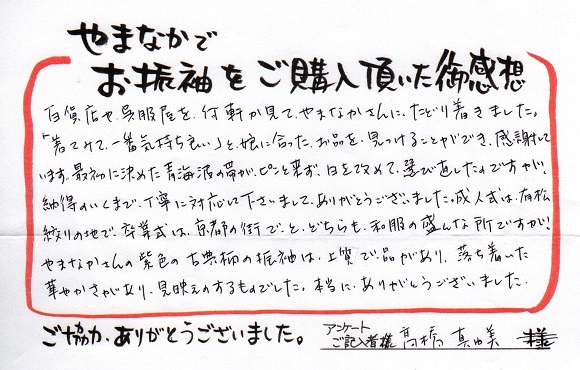 やまなかで
お振袖をご購入頂いた御感想
百貨店や呉服屋を、何軒か見て、やまなかさんに、たどり着きました。
「着てみて、一番気持ち良い」と、娘に合った、お品を、見つけることができ、感謝して
います。最初に決めた青海波の帯が、ピンと来ず、日を改めて、選び直したのですが、
納得のいくまで、丁寧に対応して下さいまして、ありがとうございました。成人式は、有松
絞りの地で、卒業式は、京都の街で、と、どちらも、和服の盛んな所ですが、
やまなかさんの紫色の古典柄の振袖は、上質で、品があり、落ち着いた
華やかさがあり、見映えのするものでした。本当に、ありがとうございました。
ご協力、ありがとうございました。
アンケート
ご記入者様 高橋 真由美 様